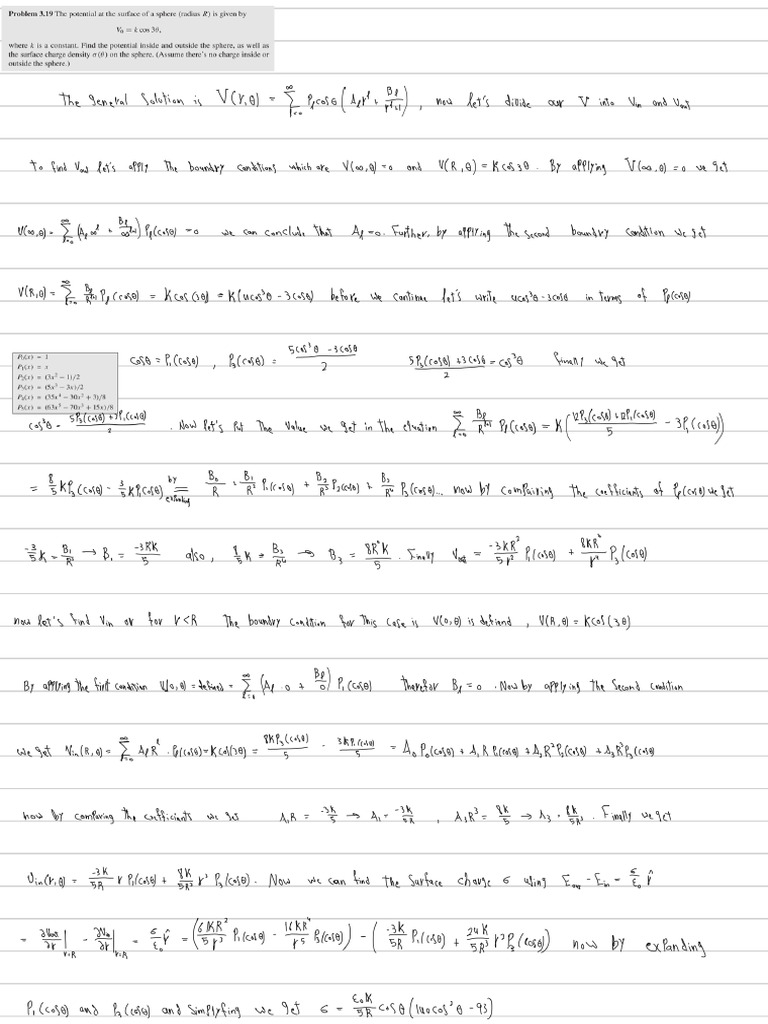 Problem 3.19 The potential at the surface of a sphere (radius R) is given by
V₀ = k cos 3θ,
where k is a constant. Find the potential inside and outside the sphere, as well as
the surface charge density σ(θ) on the sphere. (Assume there's no charge inside or
outside the sphere.)
The general Solution is V(r,θ) = ∑_{l=0}^{∞} Pₗcosθ (Aₗrˡ + Bₗ/r^{l+1}) , now let's divide our V into Vin and Vout
To find Vout let's apply The boundry conditions which are V(∞,θ)=0 and V(R,θ) = Kcos3θ . By applying V(∞,θ)=0 we get
V(∞,θ) = ∑_{l=0}^{∞} (Aₗ∞ˡ + Bₗ/∞^{l+1}) Pₗ(cosθ) = 0 we can conclude that Aₗ=0. Further, by applying the second boundry condition we get
V(R,θ) = ∑_{l=0}^{∞} Bₗ/R^{l+1} Pₗ(cosθ) = Kcos(3θ) = K(4cos³θ - 3cosθ) before we continue let's write 4cos³θ-3cosθ in terms of Pₗ(cosθ)
P₀(x) = 1
P₁(x) = x
P₂(x) = (3x² − 1)/2
P₃(x) = (5x³ − 3x)/2
P₄(x) = (35x⁴ − 30x² + 3)/8
P₅(x) = (63x⁵ − 70x³ + 15x)/8
cosθ = P₁(cosθ) , P₃(cosθ) = (5cos³θ - 3cosθ)/2 (5P₃(cosθ) + 3cosθ)/2 = cos³θ finally we get
cos³θ = . Now let's Put The value we get in the equation ∑_{l=0}^{∞} Bₗ/R^{l+1} Pₗ(cosθ) = K((12P₃(cosθ) + 12P₁(cosθ))/5 - 3P₁(cosθ))
= 8/5 KP₃(cosθ) - 3/5 KP₁(cosθ) = by expanding B₀/R + B₁/R² P₁(cosθ) + B₂/R³ P₂(cosθ) + B₃/R⁴ P₃(cosθ)... now by comparing the coefficients of Pₗ(cosθ) we get
-3/5 K = B₁/R² → B₁ = -3R²K/5 also, 8/5 K = B₃/R⁴ → B₃ = 8R⁴K/5 . Finally Vout = -3KR²/5r² P₁(cosθ) + 8KR⁴/r⁴ P₃(cosθ)
now let's find Vin or for r<R The boundry condition for this case is V(0,θ) is defiend , V(R,θ) = Kcos(3θ)
By applying the first condition V(0,θ) = defined = ∑_{l=0}^{∞} (Aₗ 0 + Bₗ/0) Pₗ(cosθ) therefor Bₗ=0 . Now by applying the second condition
we get Vin(R,θ) = ∑_{l=0}^{∞} AₗRˡ · Pₗ(cosθ) = Kcos(3θ) = 8KP₃(cosθ)/5 - 3KP₁(cosθ)/5 = A₀P₀(cosθ) + A₁R P₁(cosθ) + A₂R²P₂(cosθ) + A₃R³P₃(cosθ)
now by comparing the coefficients we get A₁R = -3K/5 → A₁ = -3K/5R , A₃R³ = 8K/5 → A₃ = 8K/5R³ . Finally we get
Vin(r,θ) = -3K/5R r P₁(cosθ) + 8K/5R³ r³ P₃(cosθ). Now we can find the surface charge σ using Eout - Ein = σ/ε₀ r̂
= ∂Vout/∂r |r=R - ∂Vin/∂r |r=R = σ/ε₀ r̂ = (6KR²/5r³ P₁(cosθ) - 16KR⁴/r⁵ P₃(cosθ)) - (-3K/5R P₁(cosθ) + 24K/5R³ r²P₃(cosθ)) now by expanding
P₁(cosθ) and P₃(cosθ) and simplyfing we get σ = ε₀K/5R cosθ (140cos²θ - 93)